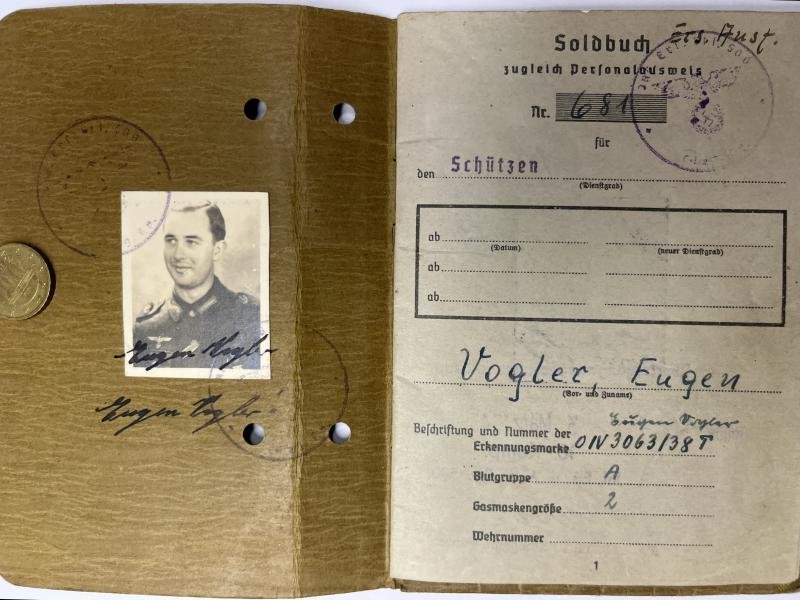 Eugen Vogler
Eugen Vogler
Soldbuch
zugleich Personalausweis
Nr. 681
für
den Schützen
(Dienstgrad)
ab
(Datum) (neuer Dienstgrad)
ab
ab
Vogler, Eugen
(Vor- und Zuname)
Eugen Vogler
Beschriftung und Nummer der
Erkennungsmarke
Blutgruppe A
Gasmaskengröße 2
Wehrnummer
1